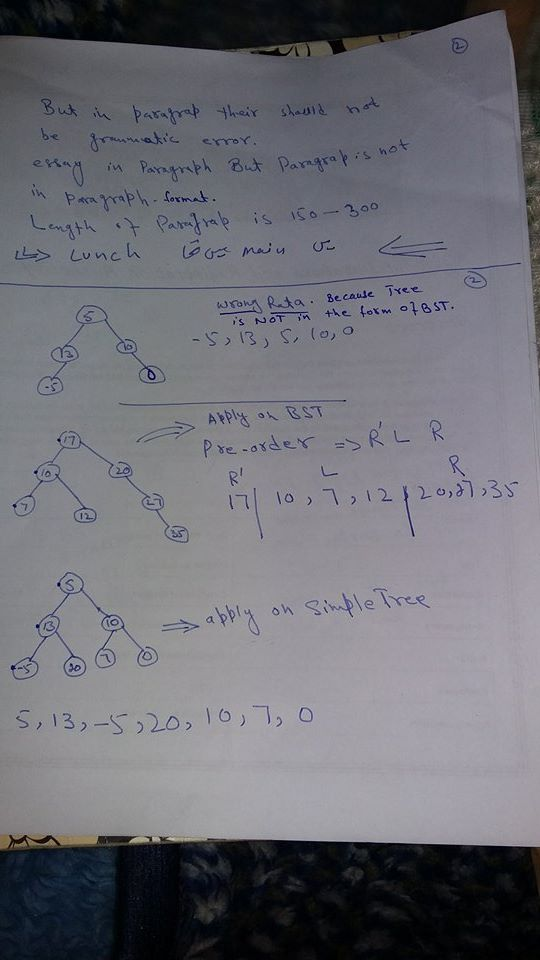 2
But in paragrap their should not
be grammatic error.
essay in Paragraph But Paragrap is not
in paragraph-format.
Length of Parafrap is 150 - 300
Lunch main
2
Wrong Rata. Because Tree
is NOT in the form of BST.
-5, 13, 5, 10, 0
5
13 10
-5 0
Apply on BST
Pre-order => R' L R
R' L R
17 | 10, 7, 12 | 20, 27, 35
17
10 20
7 12 27
35
5
13 10
-5 20 7 0
=> apply on Simple Tree
5, 13, -5, 20, 10, 7, 0